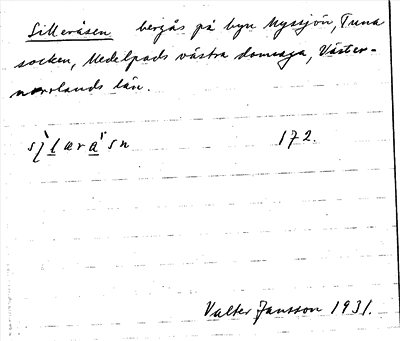 Silleråsen bergås på byn Nysjön, Tuna
socken, Medelpads västra domsaga, Väster-
norrlands län.
172.
Valter Jansson 1931.